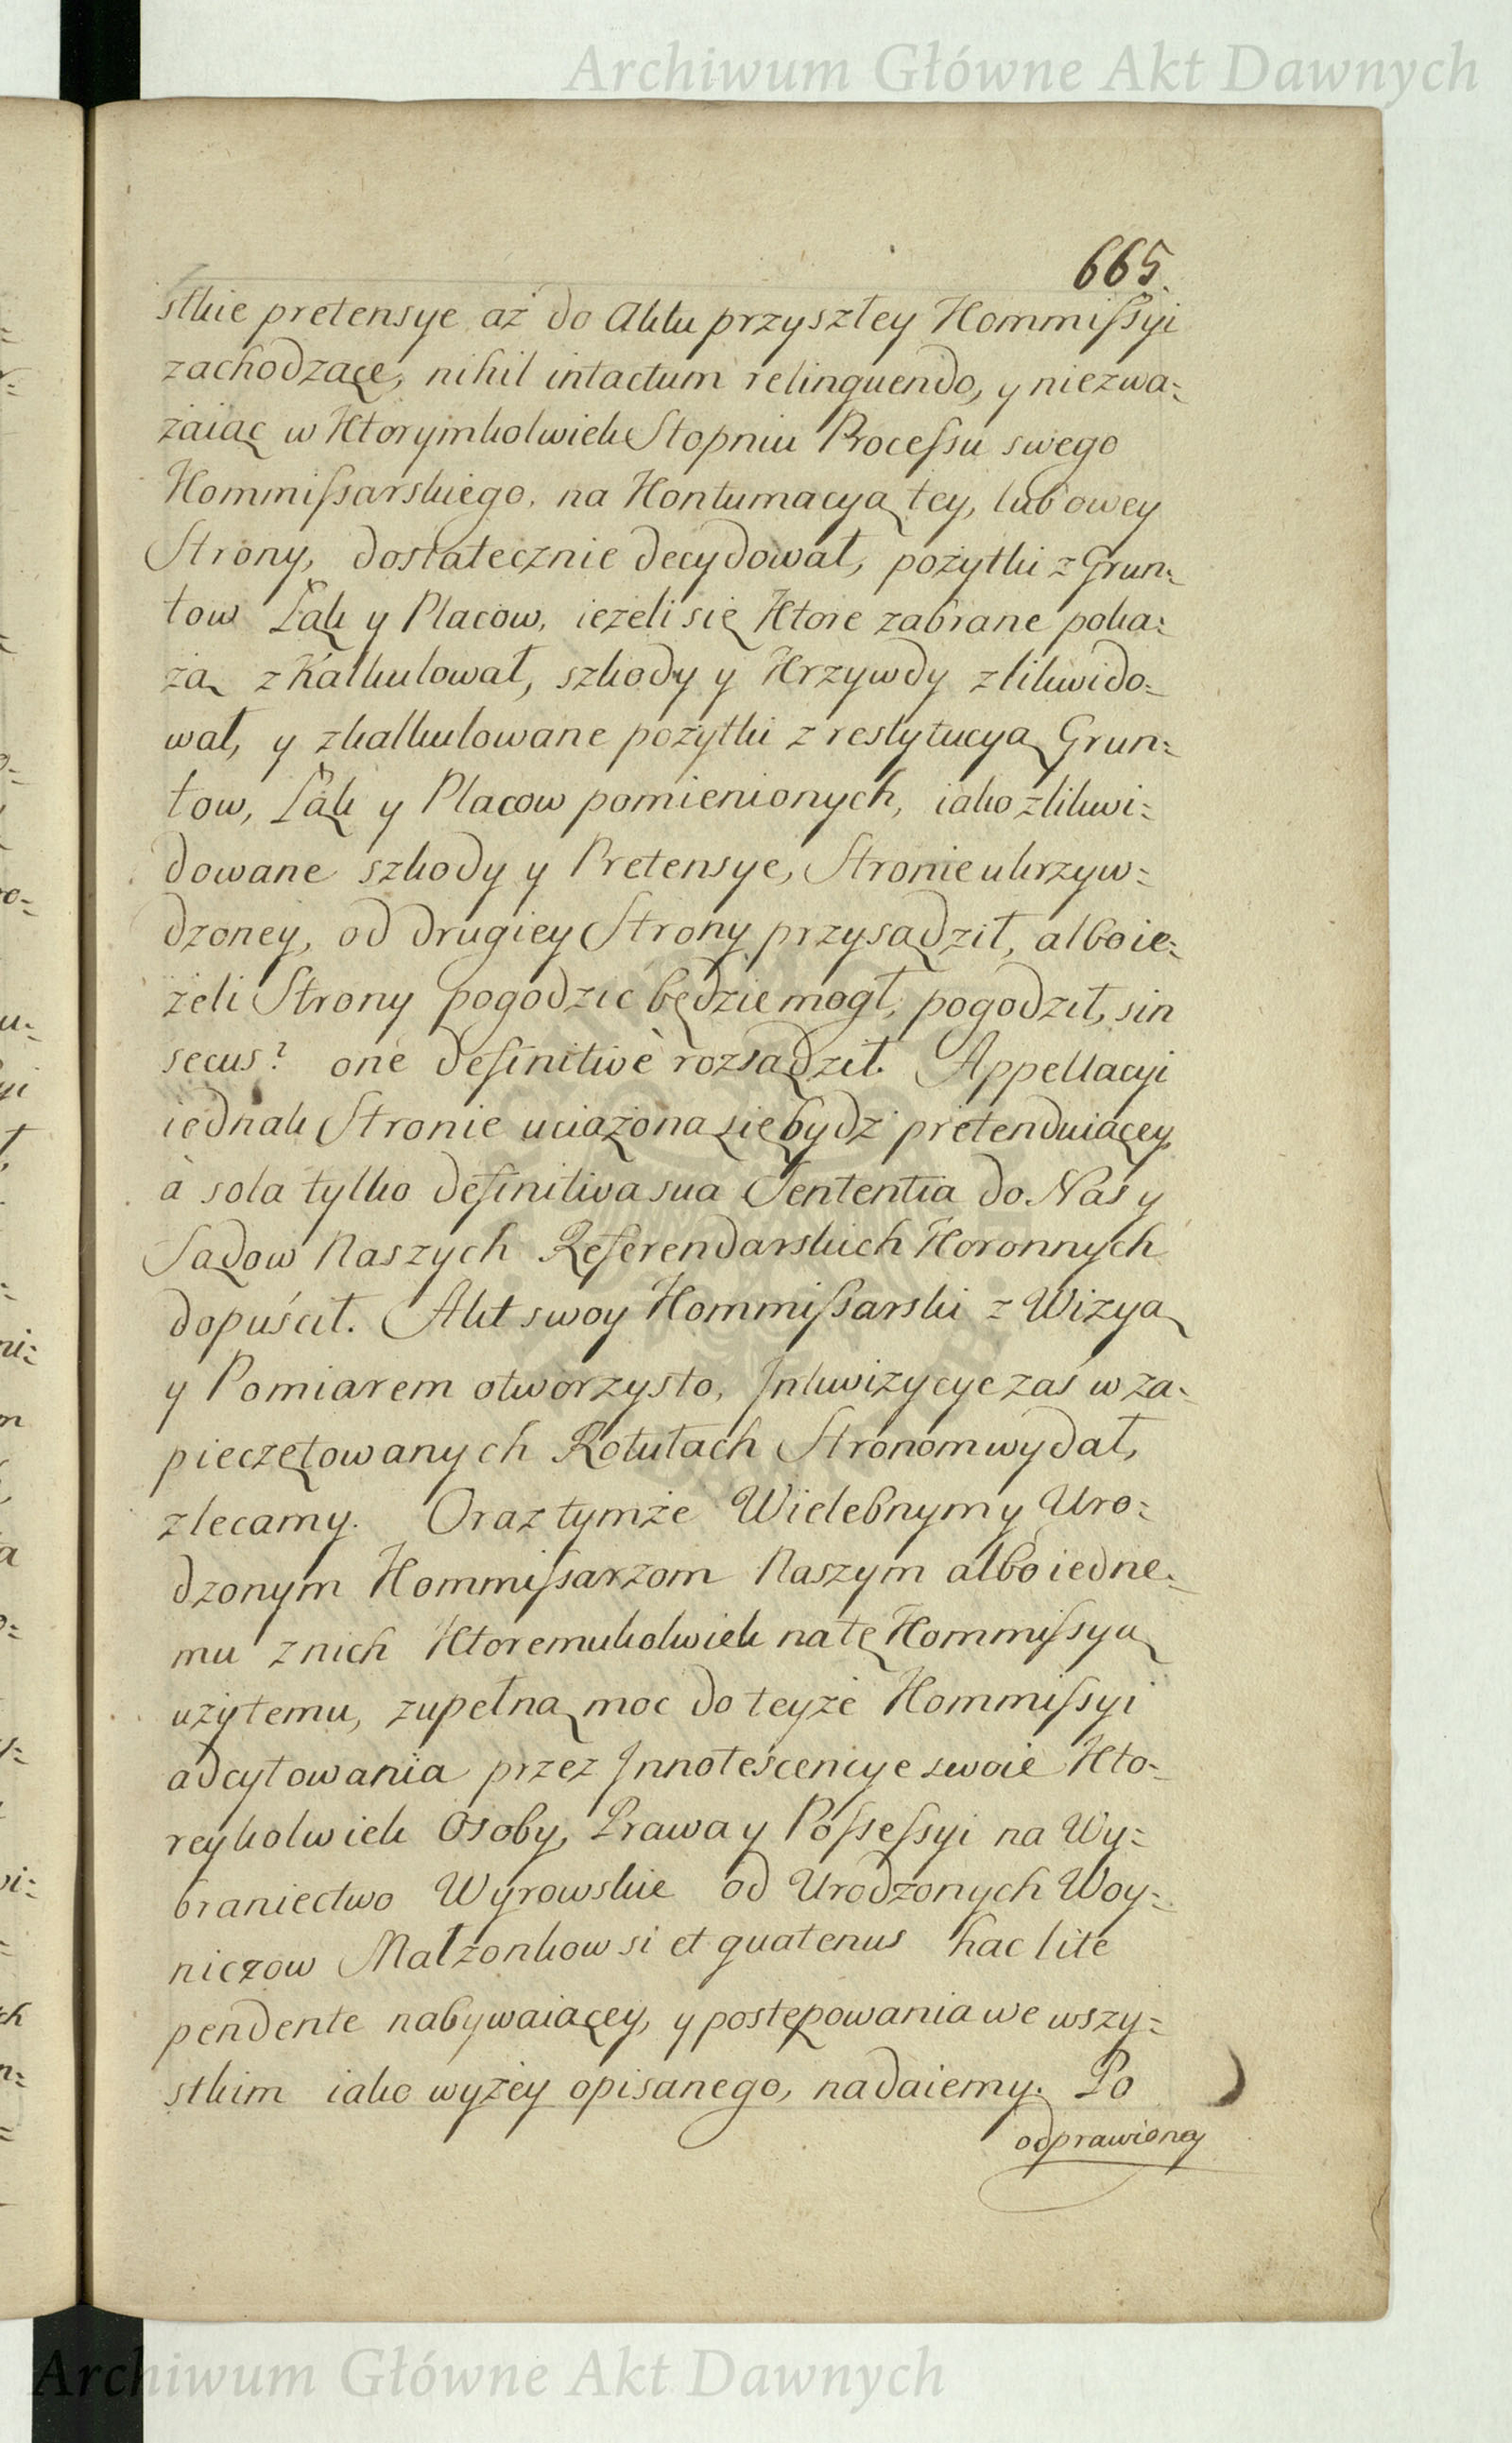 Archiwum Główne Akt Dawnych
665.
stkie pretensye aż do Aktu przyszłey Kommissyi
zachodzące, nihil intactum relinquendo, y niezwa=
żaiąc w Ktorymkolwiek Stopniu Processu swego
Kommissarskiego, na Kontumacyą tey, lub owey
Strony, dostatecznie decydował, pożytki z Grun=
tow Łąk y Placow, ieżeli się Ktore zabrane poka=
żą zkalkulował, szkody y Krzywdy zlikwido=
wał, y zkalkulowane pożytki z restytucyą Grun=
tow, Łąk y Placow pomienionych, iako zlikwi=
dowane szkody y Pretensye, Stronie ukrzyw=
dzoney, od drugiey Strony przysądził, albo ie=
żeli Strony pogodzic będzie mogł, pogodził, sin
secus? one definitivè rozsądził. Appellacyi
iednak Stronie uciążoną się bydź pretenduiącey,
à sola tylko definitiva sua Sententia do Nas y
Sądow Naszych Referendarskich Koronnych
dopuścił. Akt swoy Kommissarski z Wizyą
y Pomiarem otworzysto, Inkwizycye zaś w za=
pieczętowanych Rotułach Stronom wydał,
zlecamy. Oraz tymże Wielebnym y Uro=
dzonym Kommissarzom Naszym albo iedne=
mu z nich Ktoremukolwiek na tę Kommissyą
użytemu, zupełną moc do teyże Kommissyi
adcytowania przez Innotescencye swoie Kto=
reykolwiek Osoby, Prawa y Possessyi na Wy=
braniectwo Wyrowskie od Urodzonych Woy=
niczow Małżonkow si et quatenus hac lite
pendente nabywaiącey, y postępowania we wszy=
stkim iako wyżey opisanego, nadaiemy. Po
odprawioney
Archiwum Główne Akt Dawnych